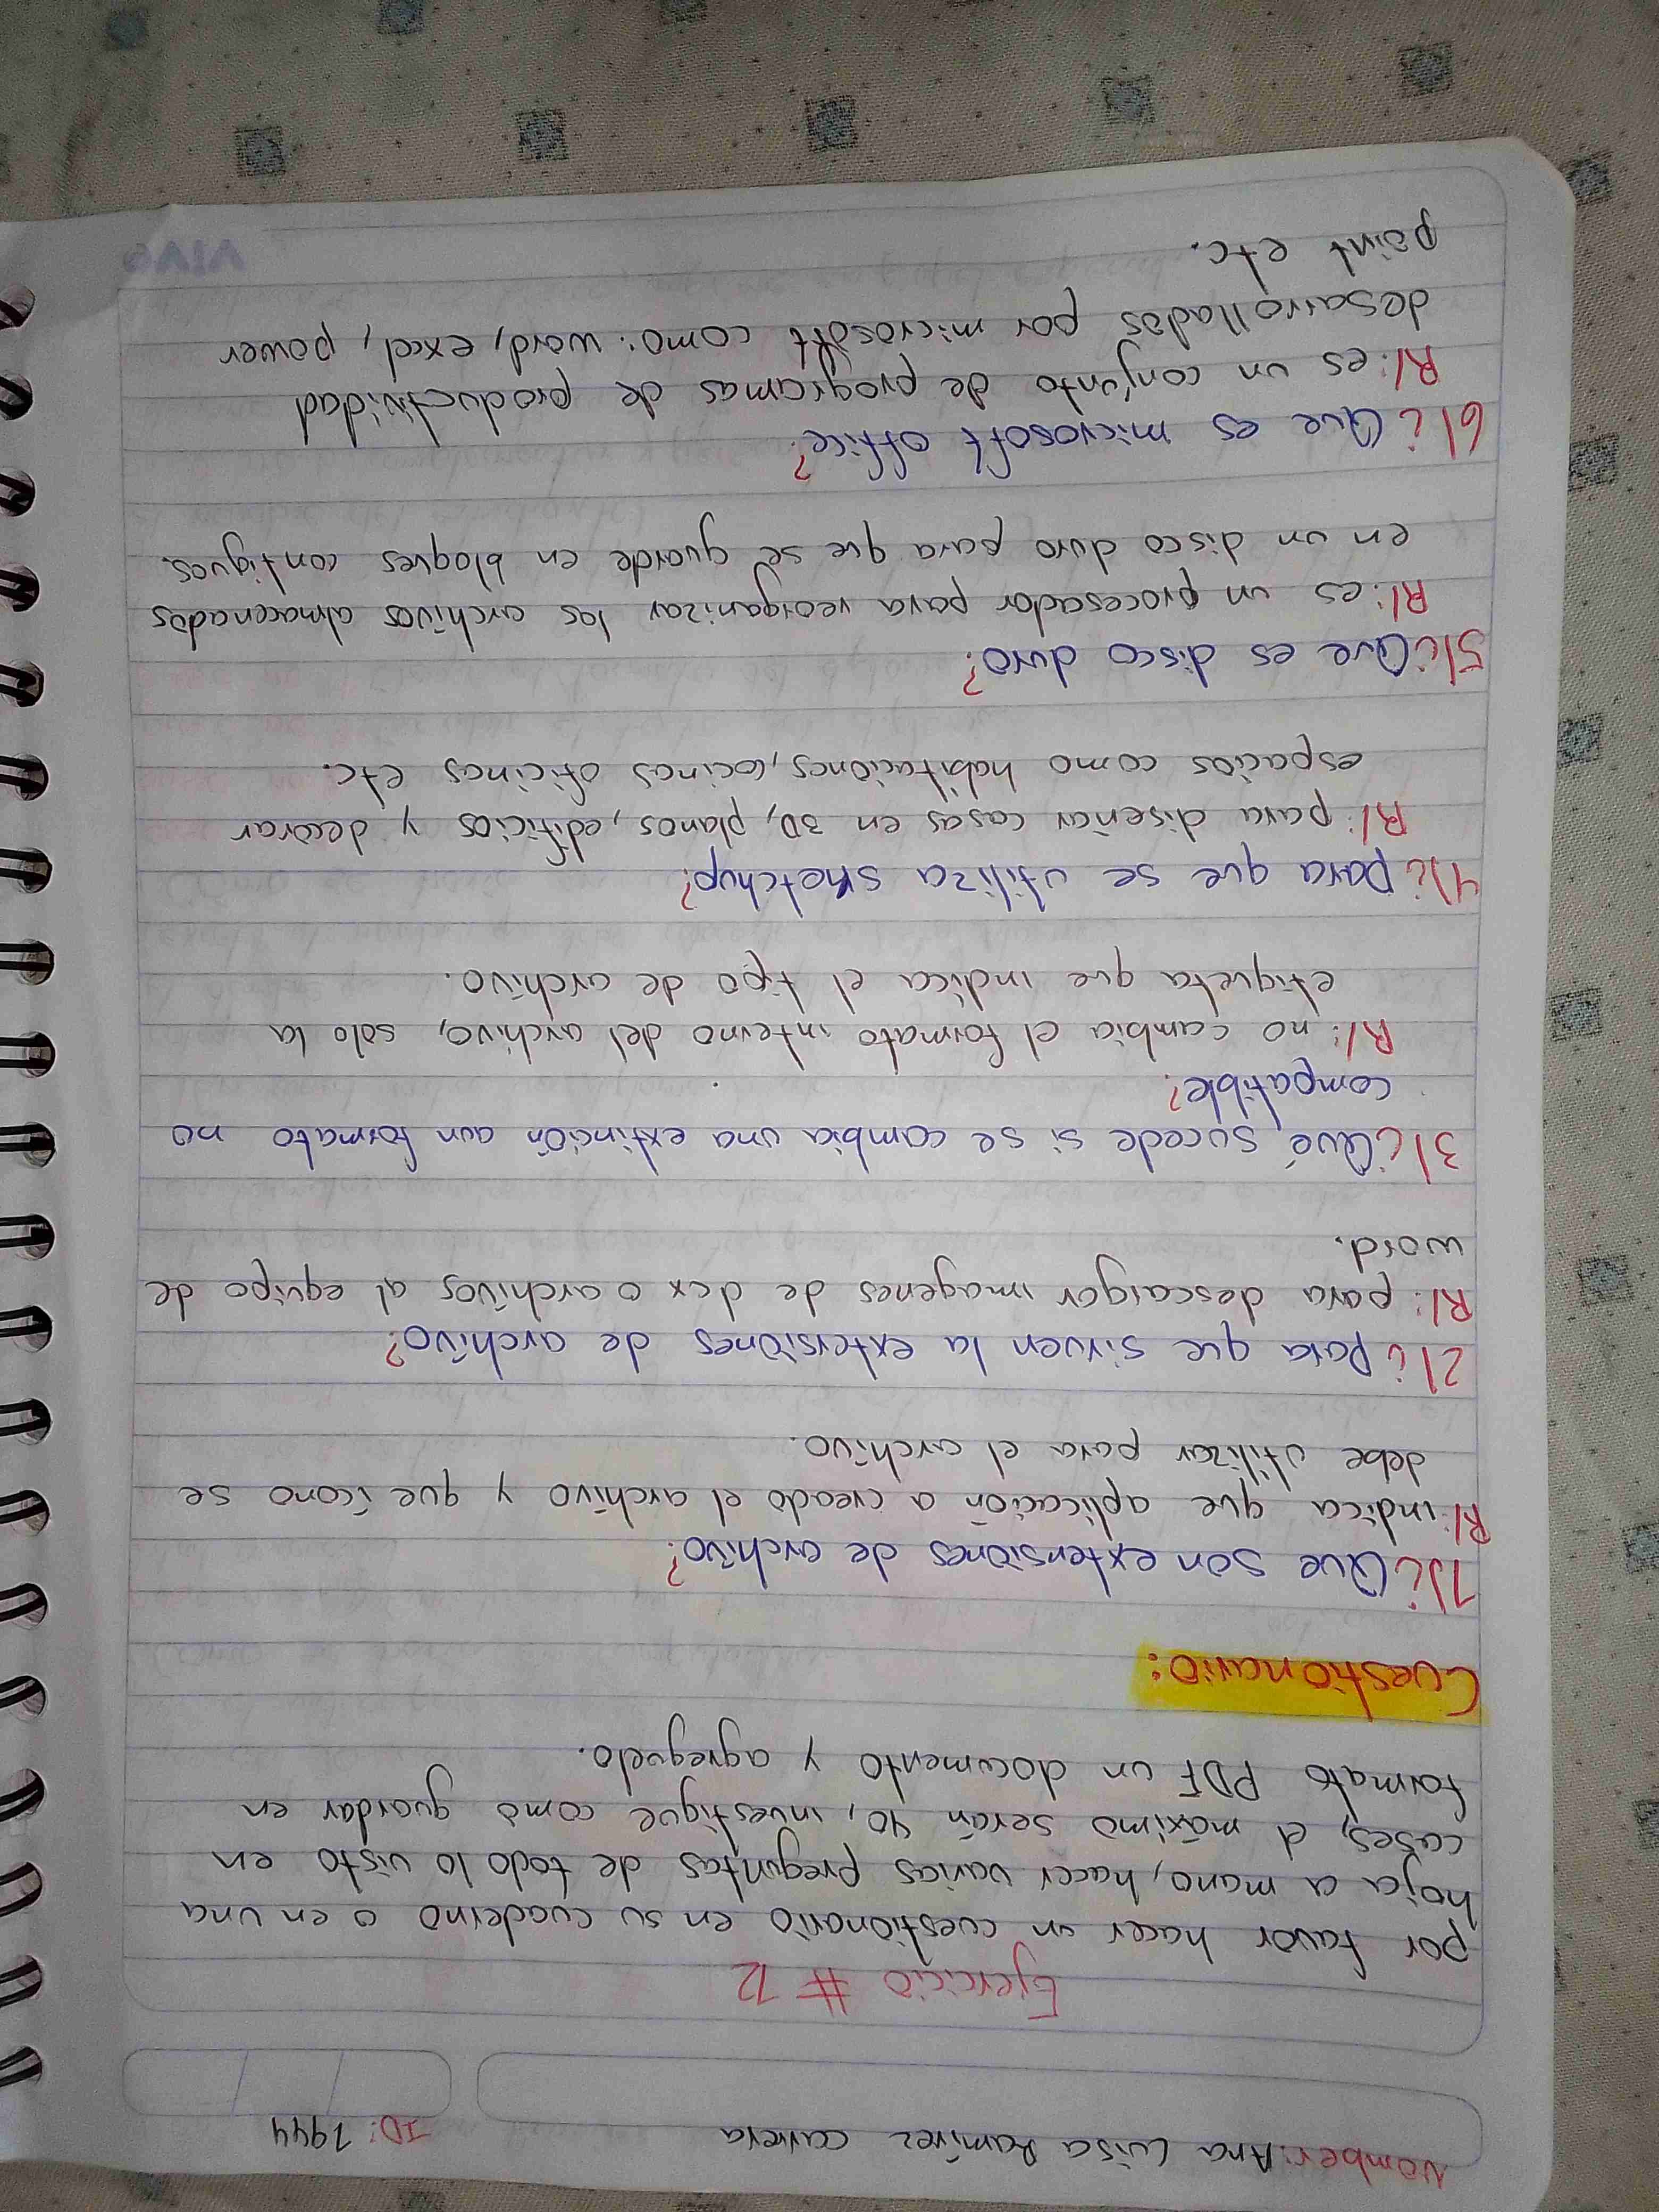 Nombre: Ana Luisa Ramírez carrera ID: 7944
Ejercicio # 12
por favor hacer un cuestionario en su cuaderno o en una
hoja a mano, hacer varias preguntas de todo lo visto en
cases, el máximo serán 40, investigue como guardar en
formato PDF un documento y agreguelo.
Cuestionario:
1) ¿Que son extensiones de archivo?
R/: indica que aplicación a creado el archivo y que ícono se
debe utilizar para el archivo.
2) ¿para que sirven la extensiones de archivo?
R/: para descargar imagenes de dcx o archivos al equipo de
word.
3) ¿Qué sucede si se cambia una extinción aun formato no
compatible?
R/: no cambia el formato interno del archivo, solo la
etiqueta que indica el tipo de archivo.
4) ¿para que se utiliza sketchup?
R/: para diseñar casas en 3D, planos, edificios y decorar
espacios como habitaciones, cocinas oficinas etc.
5) ¿Que es disco duro?
R/: es un procesador para reorganizar los archivos almacenados
en un disco duro para que se guarde en bloques contiguos.
6) ¿Que es microsoft office?
R/: es un conjunto de programas de productividad
desarrolladas por microsoft como: word, excel, power
point etc.
VIVA